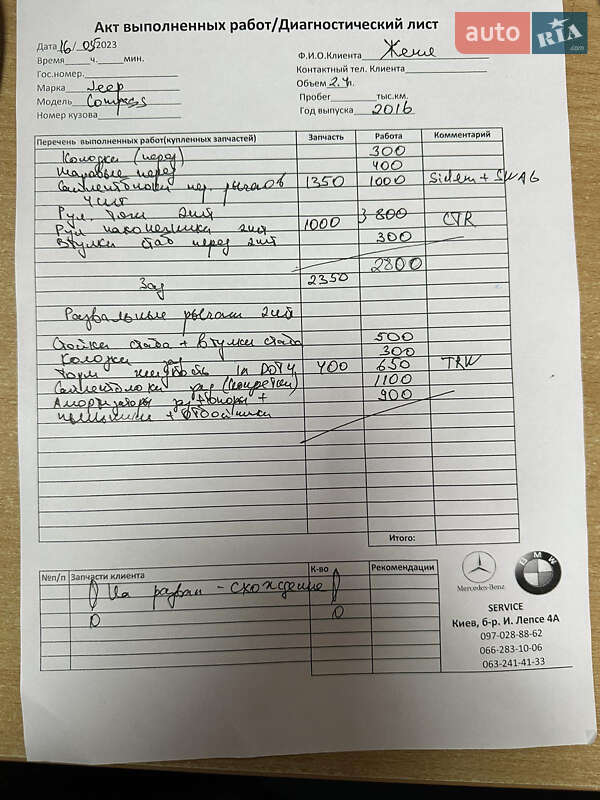 auto RIA .com
Акт выполненных работ/Диагностический лист
Дата 16/ 05 2023
Время ч. мин.
Гос.номер.
Марка Jeep
Модель Compass
Номер кузова
Ф.И.О.Клиента Женя
Контактный тел. Клиента
Объем 2.4
Пробег тыс.км.
Год выпуска 2016
Перечень выполненных работ(купленных запчастей) Запчасть Работа Комментарий
Колодки (перед) 300
Шаровые перед 400
Сайлентблоки пер. рычагов 1350 1000 Sidem + SWAG
4шт
Рул. тяги 2шт 800
Рул наконечники 2шт 1000 CTR
Втулки стаб перед 2шт 300
2800
Зад 2350
Развальные рычаги 2шт
Стойки стаба + втулки стаба 500
Колодки зад 300
Торм жидкость 1л DOT4 400 650 TRW
Сайлентблоки зад 1100
Амортизаторы зад + опоры + 900
пыльники + отбойники
Итого:
№п/п Запчасти клиента К-во Рекомендации
На развал - схождение
Mercedes-Benz
BMW
SERVICE
Киев, б-р. И. Лепсе 4А
097-028-88-62
066-283-10-06
063-241-41-33